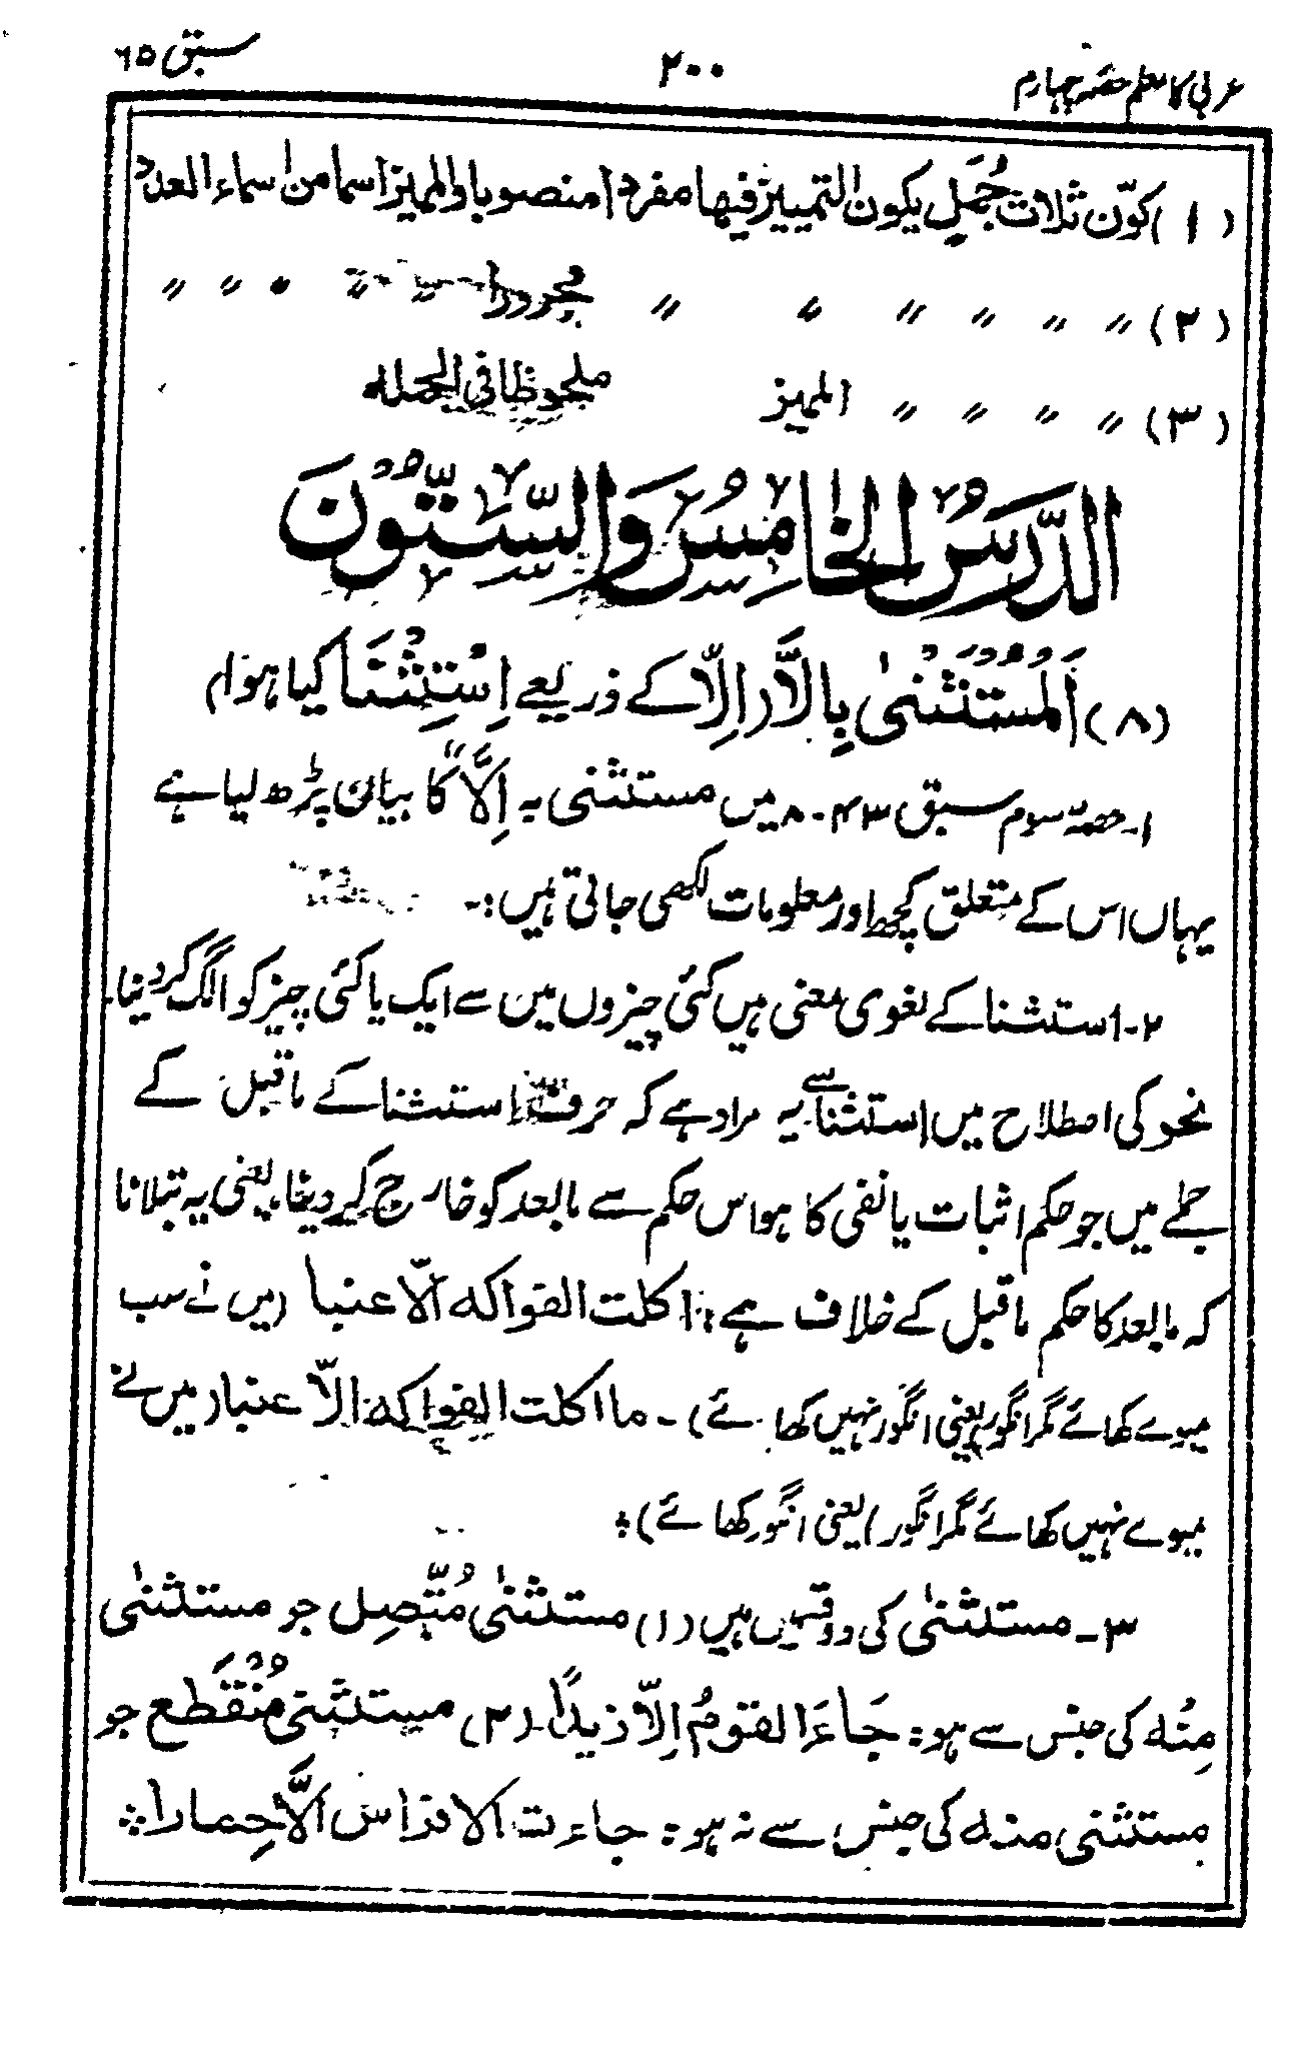 عربی کا معلم حصہ چہارم
۲۰۰
سبق ۶۵
(۱) کوّن ثلاث جُمَلٍ یکون التمییز فیھا مفردا منصوبا والممیز اسما من اسماء العدد
(۲) ״ ״ ״ ״ ״ ״ مجرورا ״ ״ ״ ״ ״
(۳) ״ ״ ״ ״ الممیز ملحوظا فی الجملہ
الدَّرْسُ الْخَامِسُ وَالسِّتُّوْنَ
(۸) اَلْمُسْتَثْنٰی بِاِلَّا (اِلّا کے ذریعے اِسْتِثْنَا کیا ہوا)
۱۔ حصہ سوم سبق ۴۳۔۸ میں مستثنی بہ اِلَّا کا بیان پڑھ لیا ہے
یہاں اس کے متعلق کچھ اور معلومات لکھی جاتی ہیں :۔
۲۔ استثنا کے لغوی معنی ہیں کئی چیزوں مین سے ایک یا کئی چیز کو الگ کردینا۔
نحو کی اصطلاح میں استثنا سے یہ مراد ہے کہ حرف استثنا کے ماقبل کے
جملے میں جو حکم اثبات یا نفی کا ہو اس حکم سے مابعد کو خارج کر دینا، یعنی یہ بتلانا
کہ مابعد کا حکم ماقبل کے خلاف ہے: اکلت الفواکہ الّا عنبا (میں نے سب
میوے کھائے مگر انگور یعنی انگور نہیں کھائے)۔ ما اکلت الفواکہ الّا عنبا (میں نے
میوے نہیں کھائے مگر انگور) یعنی انگور کھائے) ؞
۳۔ مستثنٰی کی دو قسمیں ہیں (۱) مستثنٰی مُتَّصِل جو مستثنٰی
مِنْہ کی جنس سے ہو: جَاءَ القومُ اِلّا زیدًا (۲) مستثنیٰ مُنْقَطِع جو
مستثنی منہ کی جنس سے نہ ہو: جاءت الافراس اَلَّا حِمارا ؞